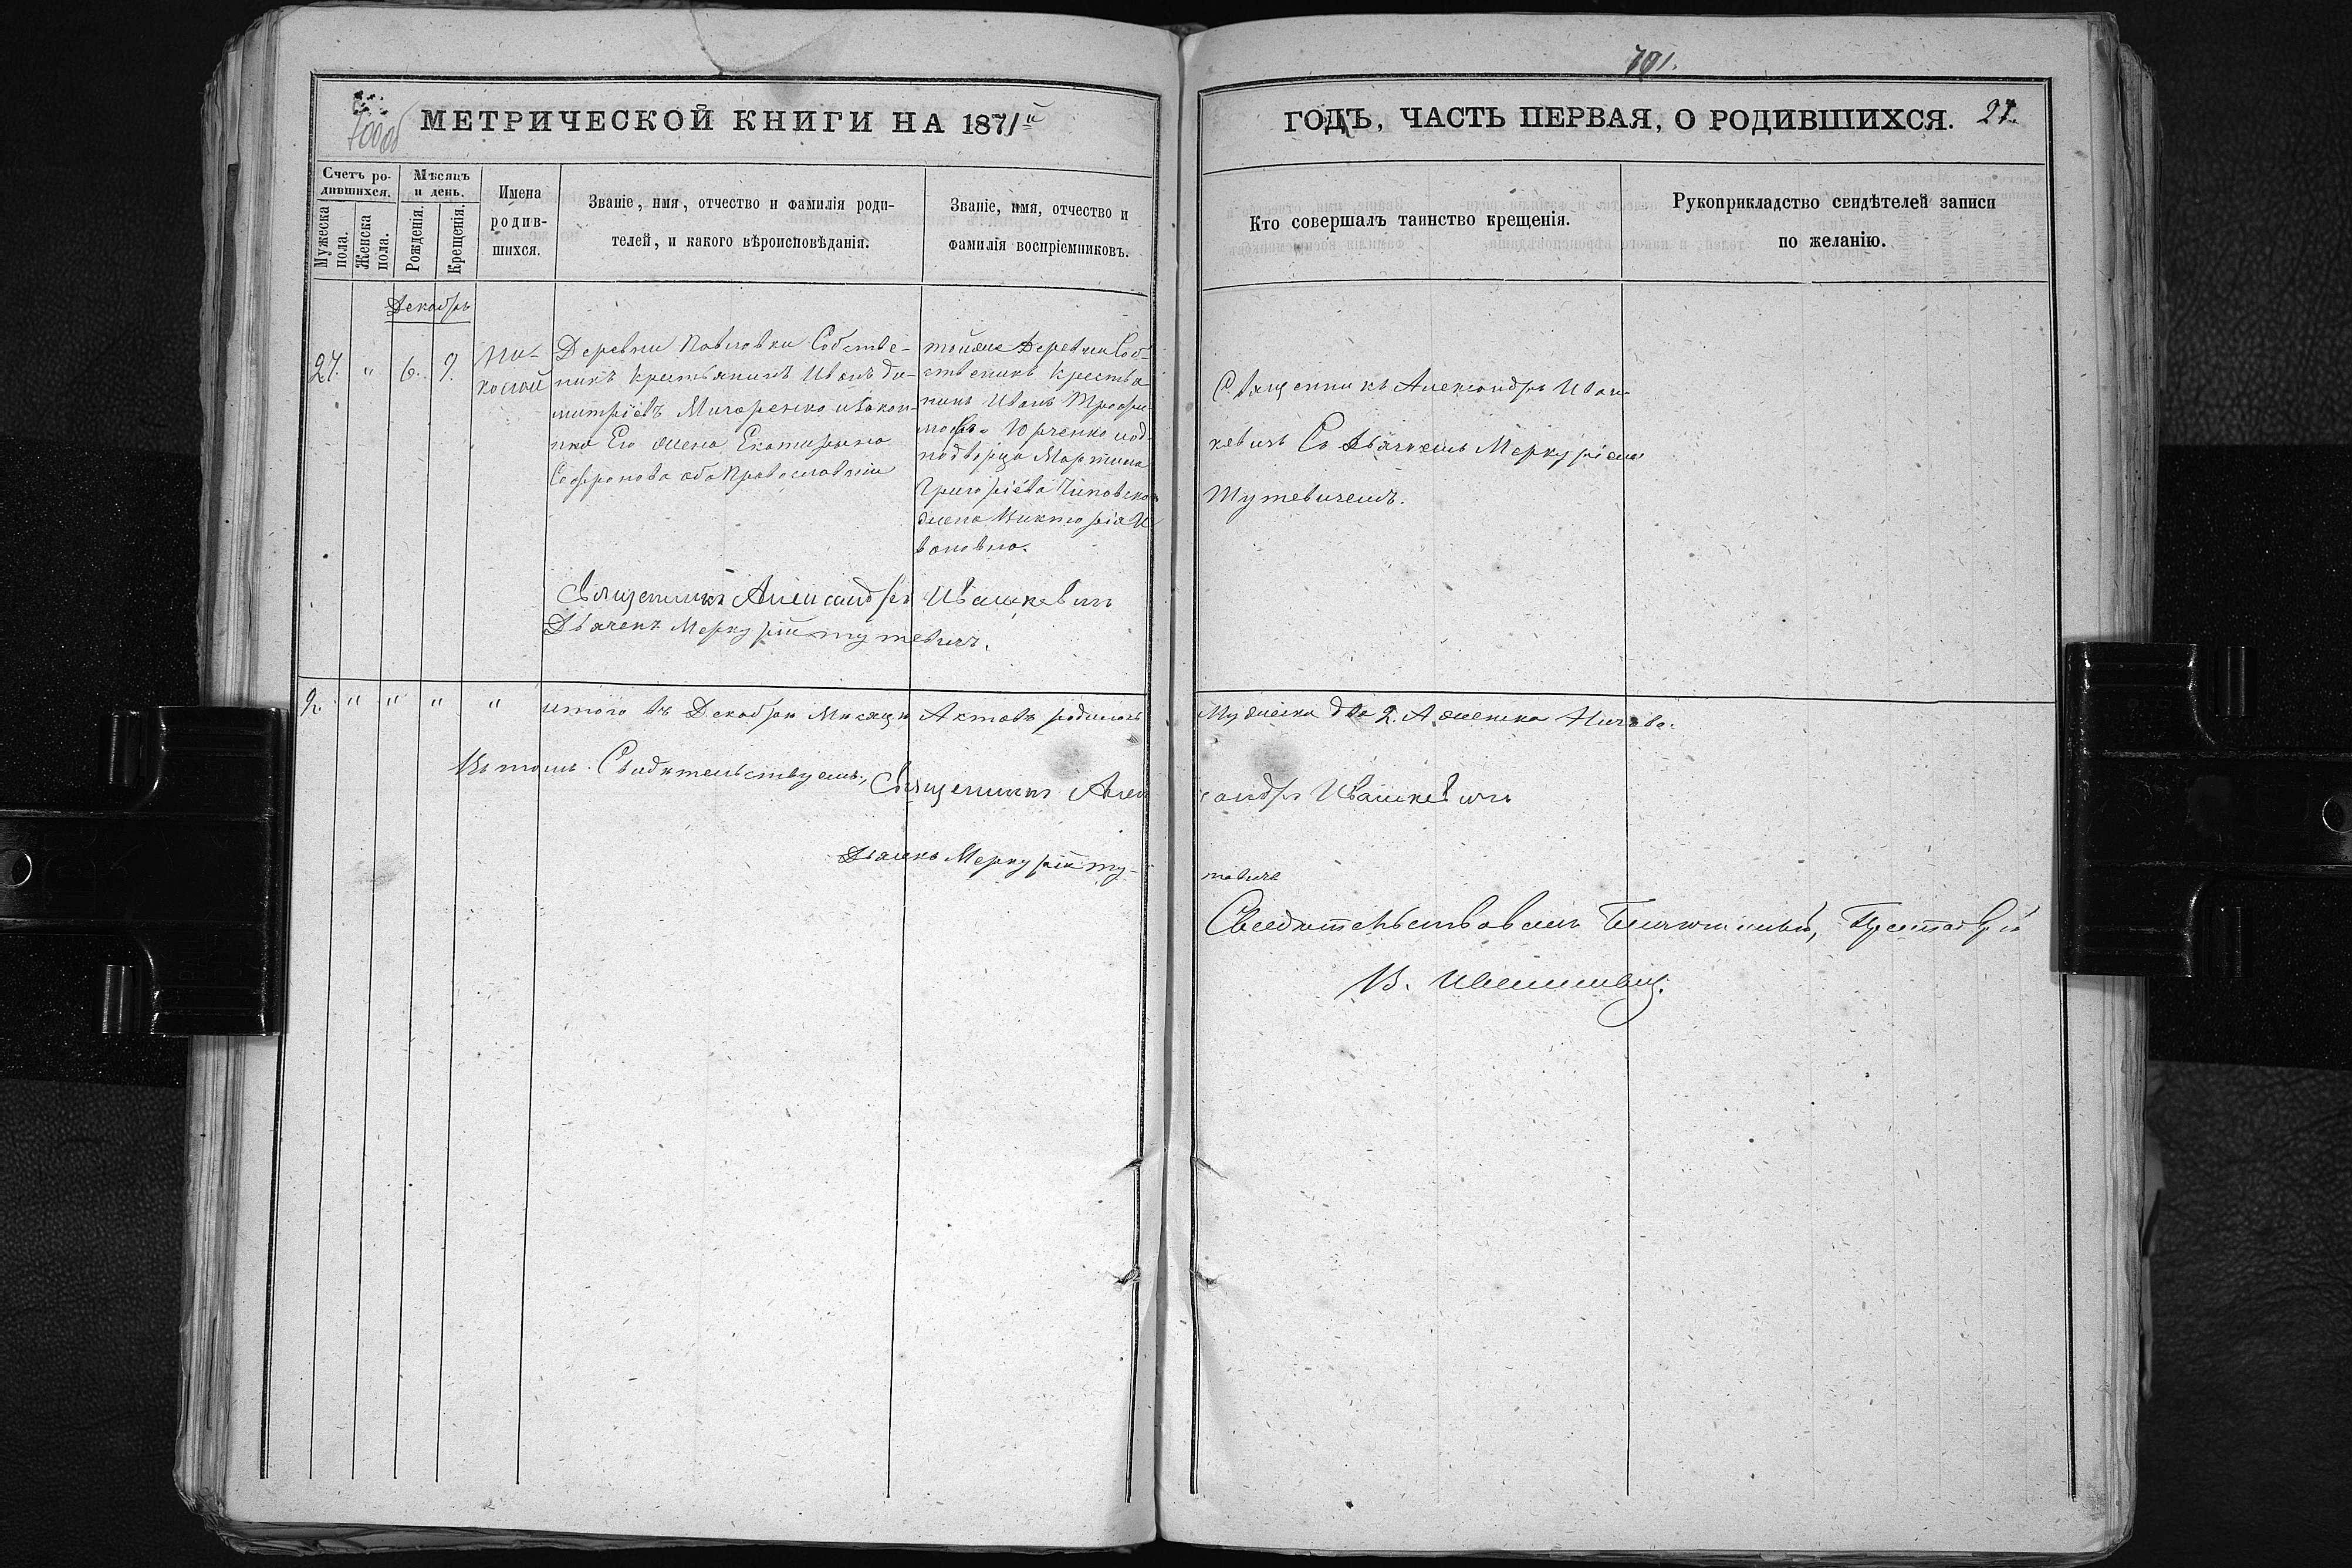 701.
МЕТРИЧЕСКОЙ КНИГИ НА 1871й
ГОДЪ, ЧАСТЬ ПЕРВАЯ, О РОДИВШИХСЯ. 27.
Счетъ родившихся.
Мужеска пола.
Женска пола.
Мѣсяцъ и день.
Рожденія.
Крещенія.
Имена родившихся.
Званіе, имя, отчество и фамилія роди-
телей, и какого вѣроисповѣданія.
Званіе, имя, отчество и
фамилія воспріемниковъ.
Кто совершалъ таинство крещенія.
Рукоприкладство свидѣтелей записи
по желанію.
Декабрь
27. " 6. 9. Ни-
колай
Деревни Павловки Собстве-
никъ крестьянинъ Иванъ Ди-
митріевъ Макаренко изакон-
ная Его жена Екатерина
Софронова оба Православніи
тойже Деревни Соб-
ственикъ крестья
нинъ Иванъ Трофи
мовъ Юрченко иод-
нодворца Мартина
Григоріева
жена Викторія И
вановна.
Священникъ Александръ Иваш
кевичъ Съ Дьячкомъ Меркуріемъ
Тутевичемъ.
Священникъ Александръ Ивашкевичъ
Дьячекъ Меркурій тутевичъ.
2. " " " " итого въ Декабрѣ Мисяцѣ Актовъ родилось Мужеска два 2. А женска Ничево.
Въ томъ Свидѣтельствуемъ, Священникъ Александръ Ивашкевичъ
Дьячекъ Меркурій тутевичъ
Свидѣтельствовалъ
В.